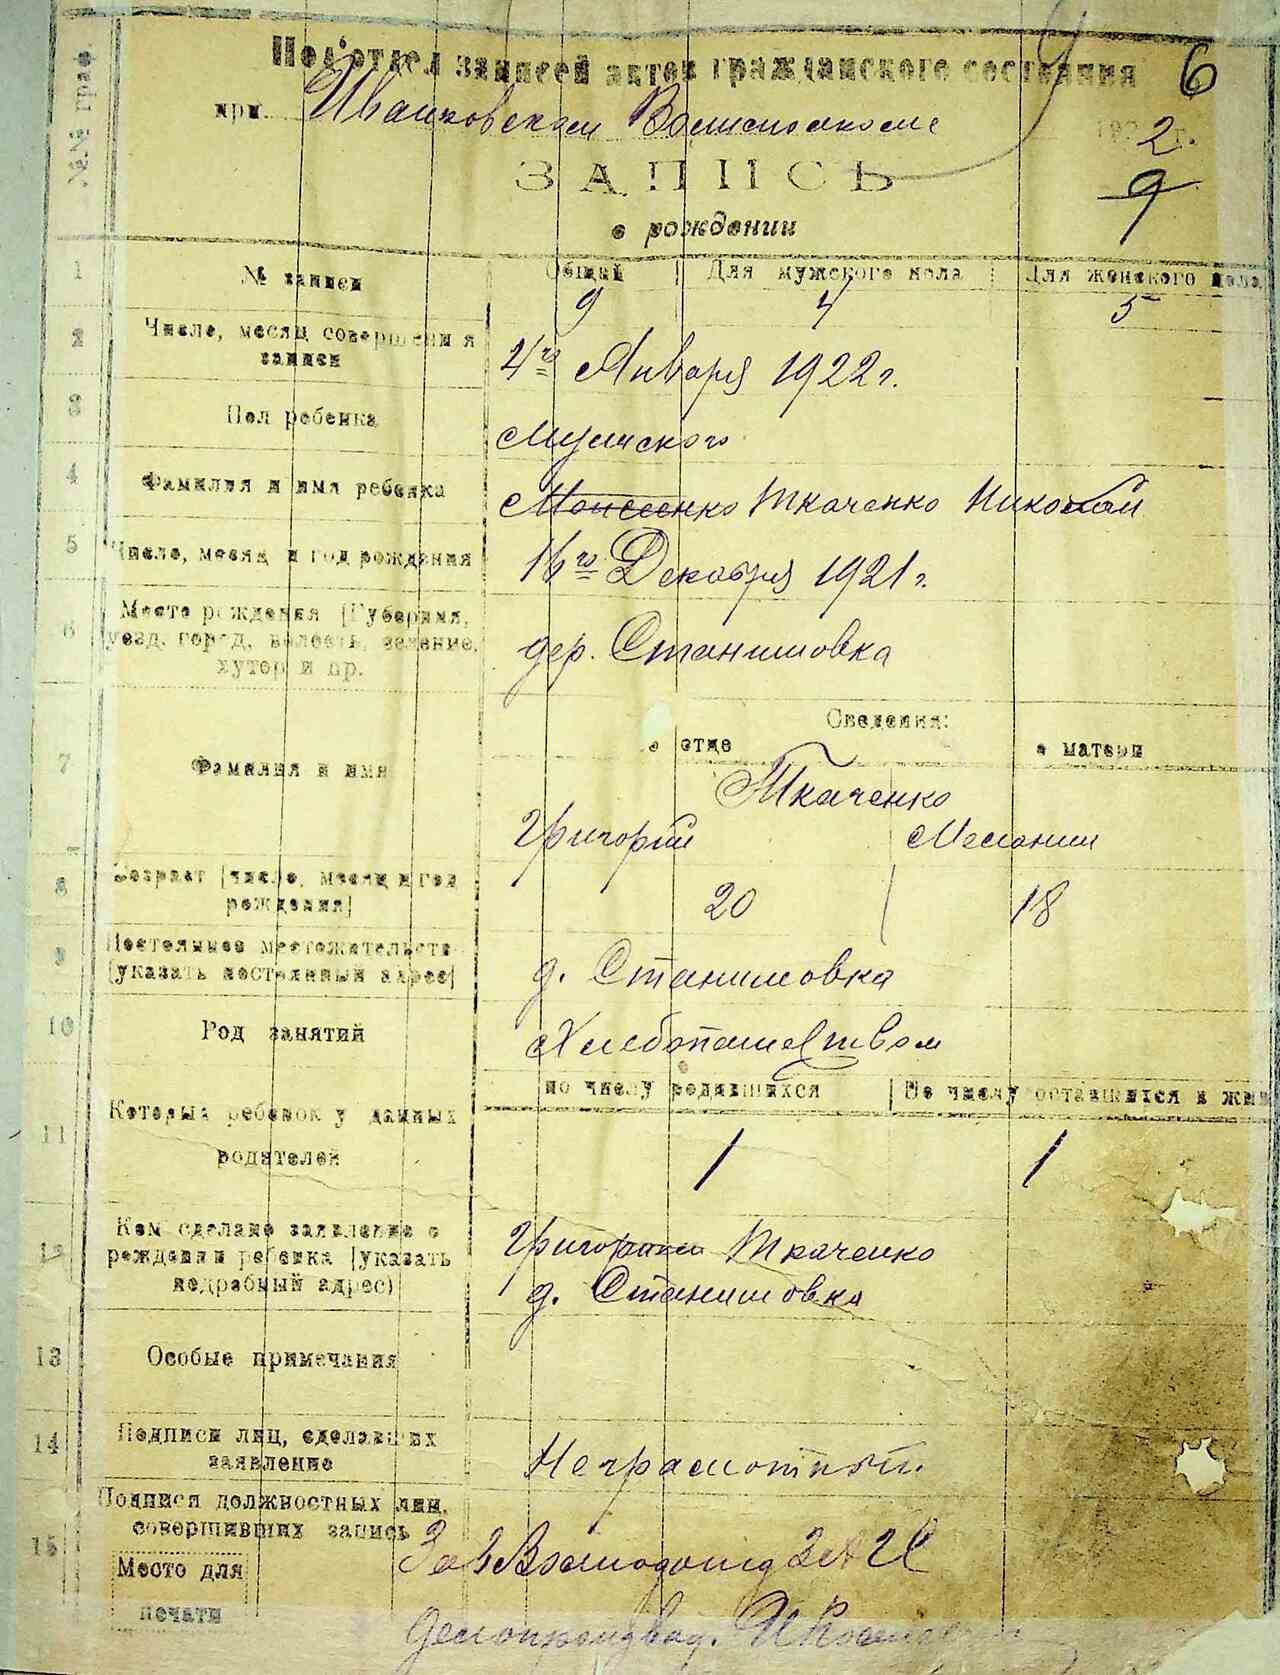 №№ граф
Подотдел записей актов гражданского состояния
6
при Иванковском Волисполкоме 1922 г.
ЗАПИСЬ
9
о рождении
1 № записи Общий Для мужского пола Для женского пола
9 4 5
2 Число, месяц совершения записи
4го Января 1922 г.
3 Пол ребенка мужского
4 Фамилия и имя ребенка Моисеенко Ткаченко Николай
5 Число, месяц и год рождения 16го Декабря 1921 г.
6 Место рождения (Губерния,
уезд, город, волость, селение,
хутор и пр.
дер. Станишовка
Сведения:
о отце о матери
7 Фамилия и имя
Ткаченко
Григорий Мелании
8 Возраст (число, месяц и год
рождения)
20 18
9 Постоянное местожительство
(указать постоянный адрес)
д. Станишовка
10 Род занятий Хлебопашеством
по числу родившихся По числу оставшихся в жив
11 Который ребенок у данных
родителей
1 1
12 Кем сделано заявление о
рождении ребенка (указать
подробный адрес)
Ткаченко
д. Станишовка
13 Особые примечания
14 Подписи лиц, сделавших
заявление
Неграмотный.
15 Подписи должностных лиц,
совершивших запись
Место для
печати
Делопроизвод.